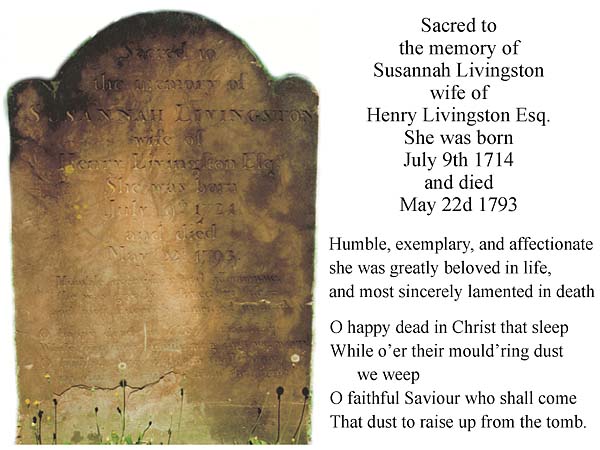 Sacred to
the memory of
SUSANNAH LIVINGSTON
wife of
Henry Livingston Esq.
She was born
July 9th
and died
May 22d 1793.
Sacred to
the memory of
Susannah Livingston
wife of
Henry Livingston Esq.
She was born
July 9th 1714
and died
May 22d 1793
Humble, exemplary, and affectionate
she was greatly beloved in life,
and most sincerely lamented in death
O happy dead in Christ that sleep
While o’er their mould’ring dust
we weep
O faithful Saviour who shall come
That dust to raise up from the tomb.